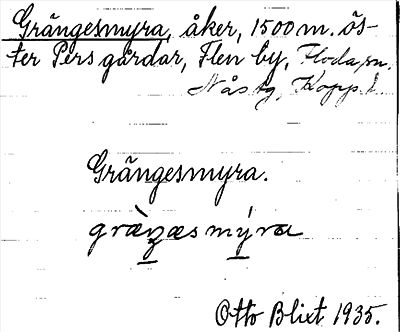 Grängesmyra, åker, 1500 m. ös-
ter Pers gårdar, Flen by, Floda sn,
Nås tg, Kopp. l.
Grängesmyra.
græ̀ŋæsmýra
Otto Blixt 1935.